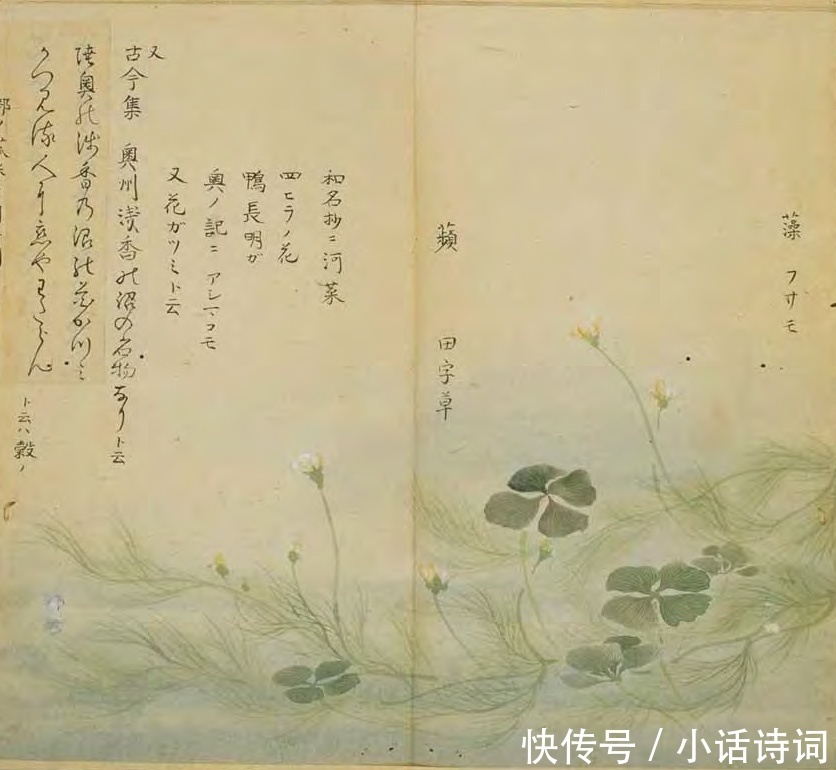 藻 フサモ
蘋 田字草
和名抄ニ河菜
四ヒラノ花
鴨長明ガ
奥ノ記ニ アシマコモ
又花ガツミト云
又
古今集 奥州浅香の沼の名物なりト云
陸奥の浅香乃沼の花かつミ
かつ見る人に恋やわたらん
ト云ハ穀ノ
快传号 / 小话诗词